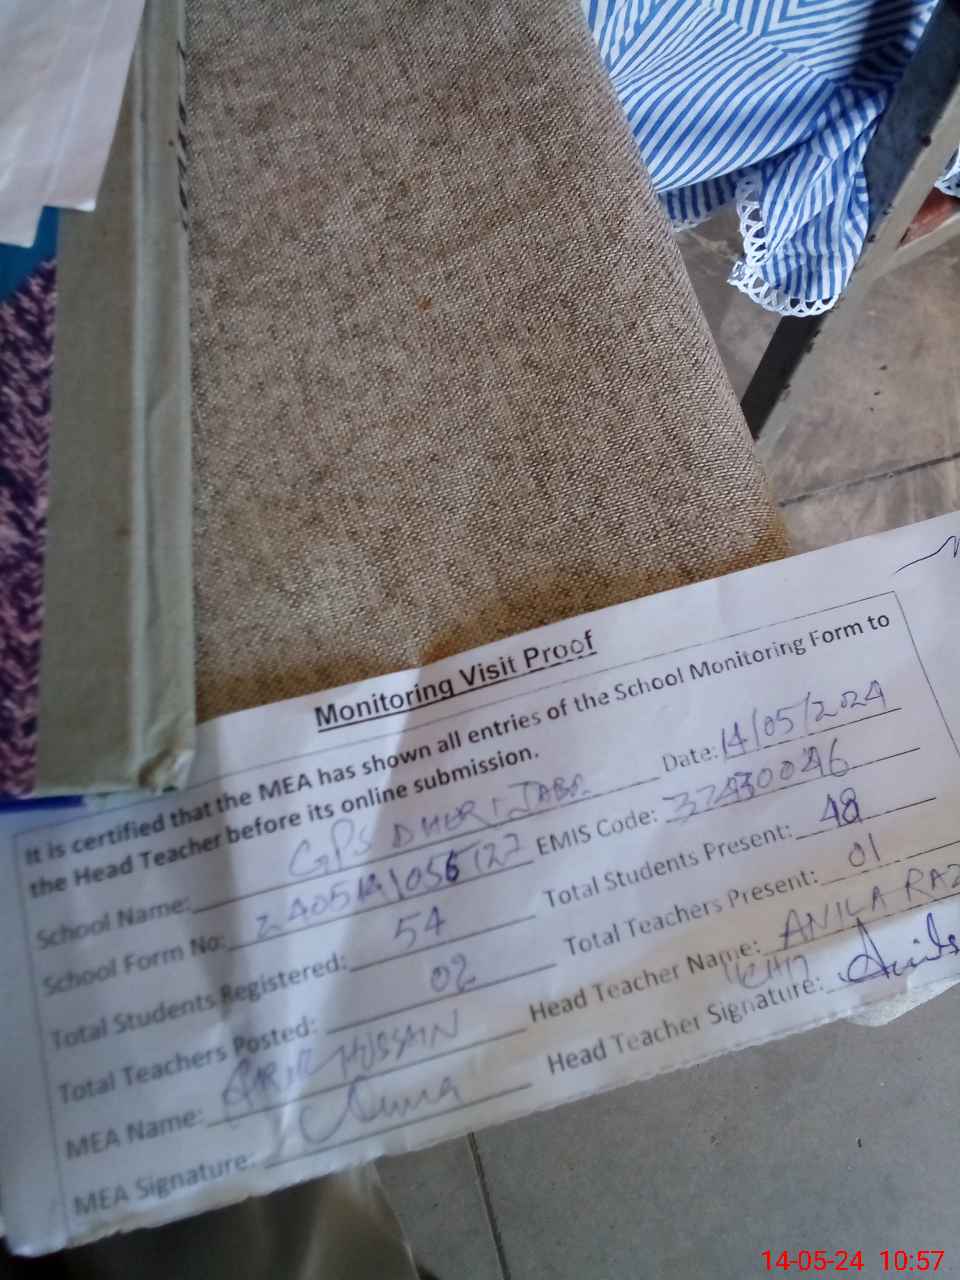 Monitoring Visit Proof
It is certified that the MEA has shown all entries of the School Monitoring Form to
the Head Teacher before its online submission.
School Name: GPS DHERI Date: 14/05/2024
School Form No: EMIS Code:
Total Students Registered: 54 Total Students Present: 48
Total Teachers Posted: 02 Total Teachers Present: 01
MEA Name: HUSSAIN Head Teacher Name: ANILA
MEA Signature: Head Teacher Signature:
14-05-24 10:57